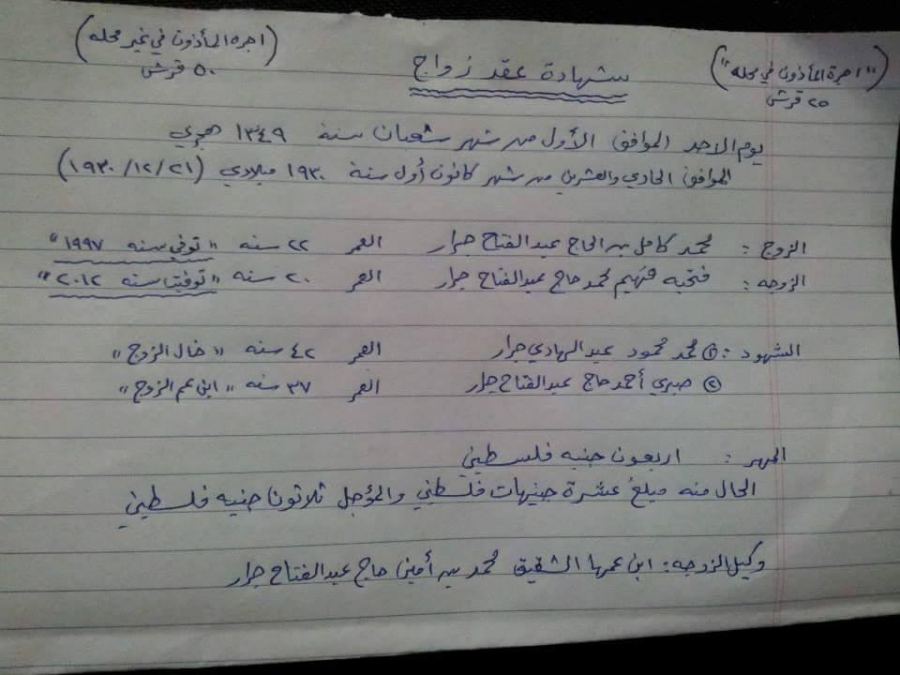 ("اجرة المأذون في محله"
٢٥ قرش)
شهادة عقد زواج
(اجرة المأذون في غير محله
٥٠ قرش)
يوم الاحد الموافق الأول من شهر شعبان سنة ١٣٤٩ هجري
الموافق الحادي والعشرين من شهر كانون أول سنة ١٩٣٠ ميلادي (١٩٣٠/١٢/٢١)
الزوج : محمد كامل بن الحاج عبدالفتاح جرار العمر ٢٢ سنه "توفي سنه ١٩٩٧"
الزوجه : فتحيه فهيم محمد حاج عبدالفتاح جرار العمر ٢٠ سنه "توفيت سنه ٢٠١٢"
الشهود : ① محمد محمود عبدالهادي جرار العمر ٤٢ سنه "خال الزوج"
② صبري أحمد حاج عبدالفتاح جرار العمر ٣٧ سنه "ابن عم الزوج"
المهر : اربعون جنيه فلسطيني
الحال منه مبلغ عشرة جنيهات فلسطيني والمؤجل ثلاثون جنيه فلسطيني
وكيل الزوجه : ابن عمها الشقيق محمد بن أمين حاج عبدالفتاح جرار